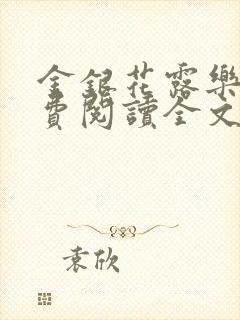 金銀花露樂
費閱讀全文
袁欣